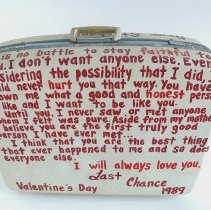 is no battle to stay faithful
I don't want anyone else. Even
sidering the possibility that I did,
uld never hurt you that way. You have
own me what a good and honest person
like and I want to be like you.
Until you, I never saw or met anyone
whom I felt was pure. Aside from my mother
believe, you are the first truly good
person I have ever met...
I think that you are the best thing
that ever happened to me and so do
everyone else.
I will always love you,
Last
Chance
Valentine's Day 1989